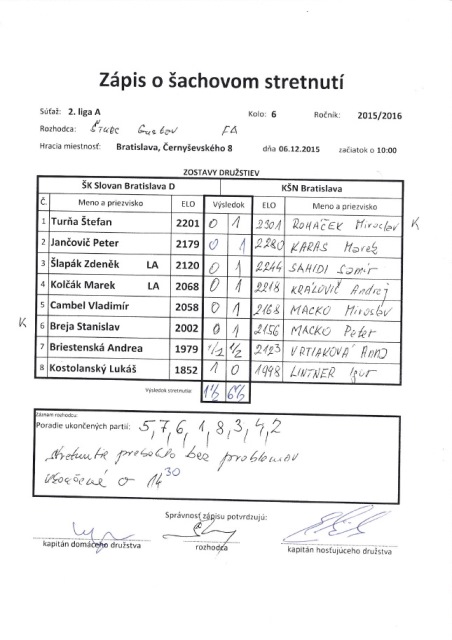 Zápis o šachovom stretnutí
Súťaž: 2. liga A Kolo: 6 Ročník: 2015/2016
Rozhodca: Gustav FA
Hracia miestnosť: Bratislava, Černyševského 8 dňa 06.12.2015 začiatok o 10:00
ZOSTAVY DRUŽSTIEV
ŠK Slovan Bratislava D KŠN Bratislava
Č. Meno a priezvisko ELO Výsledok ELO Meno a priezvisko
1 Turňa Štefan 2201 0 1 2301 ROHÁČEK Miroslav K
2 Jančovič Peter 2179 0 1 2280 KARAS Marek
3 Šlapák Zdeněk LA 2120 0 1 2244 SAHIDI Samir
4 Kolčák Marek LA 2068 0 1 2218 KRÁLOVIČ Andrej
5 Cambel Vladimír 2058 0 1 2168 MACKO Miroslav
K 6 Breja Stanislav 2002 0 1 2156 MACKO Peter
7 Briestenská Andrea 1979 1/2 1/2 2123 VRTIAKOVÁ Anna
8 Kostolanský Lukáš 1852 1 0 1998 LINTNER Igor
Výsledok stretnutia: 1½ 6½
Záznam rozhodcu:
Poradie ukončených partií: 5,7,6,1,8,3,4,2
stretnutie prebehlo bez problémov
o 14 30
Správnosť zápisu potvrdzujú:
kapitán domáceho družstva rozhodca kapitán hosťujúceho družstva